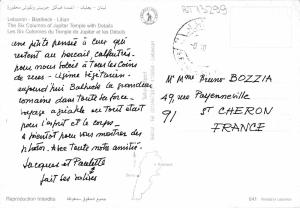 لبنان - بعلبك - أعمدة هيكل جوبيتر
Lebanon - Baalbeck - Liban
The Six Columns of Jupiter Temple with Details
Les Six Colonnes du Temple de Jupiter et les Détails
BT 13299
une petite pensée à ceux qui
restent au bercail calfeutrés.
pour nous soleil à tous les coins
de rues - régime végétarien.
aujourd'hui Balbeck la grandeur
romaine dans toute sa force -
voyage agréable où tout était
pour l'esprit et le corps -
A bientôt pour vous montrer des
photos. Avec toute notre amitié.
Jacques et Paulette
fait les valises
Mr Mme Bruno BOZZIA
49, rue Payenneville
91 ST CHERON
FRANCE
Reproduction interdite
641
Printed in Lebanon